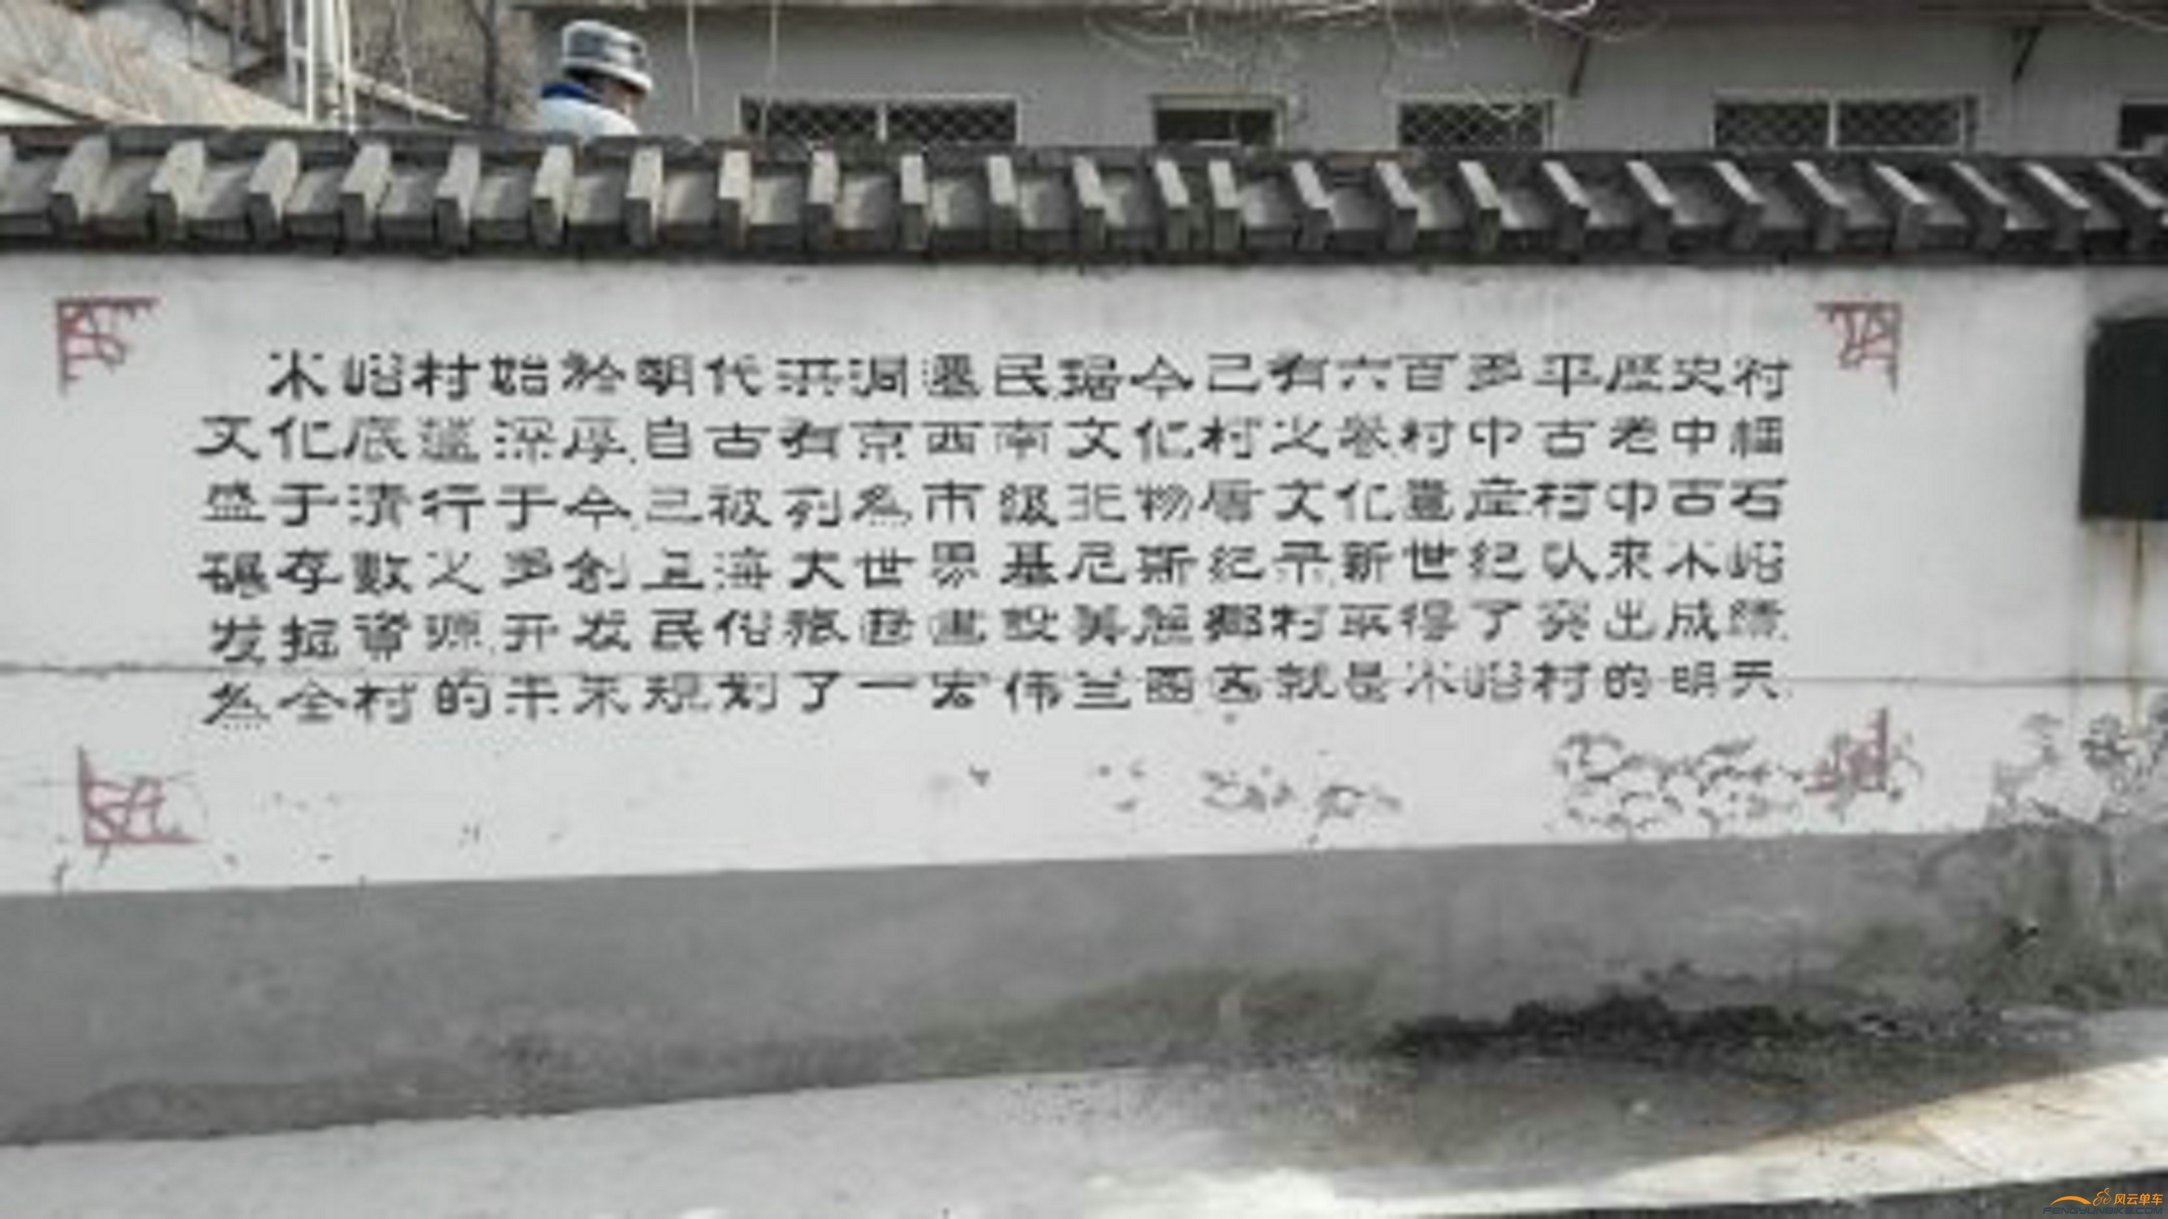 水峪村始於明代洪洞遷民据今已有六百多年歷史村
文化底蕴深厚,自古有京西南文化村之誉.村中古老中幡
盛于清行于今,已被列為市级非物质文化遺産村中古石
碾存數之多創上海大世界基尼斯纪录,新世纪以来水峪
发掘資源,开发民俗旅遊建設美麗鄉村取得了突出成绩,
為全村的未来规划了一宏伟兰圖這就是水峪村的明天.
风云单车
FENGYUNBIKE.COM